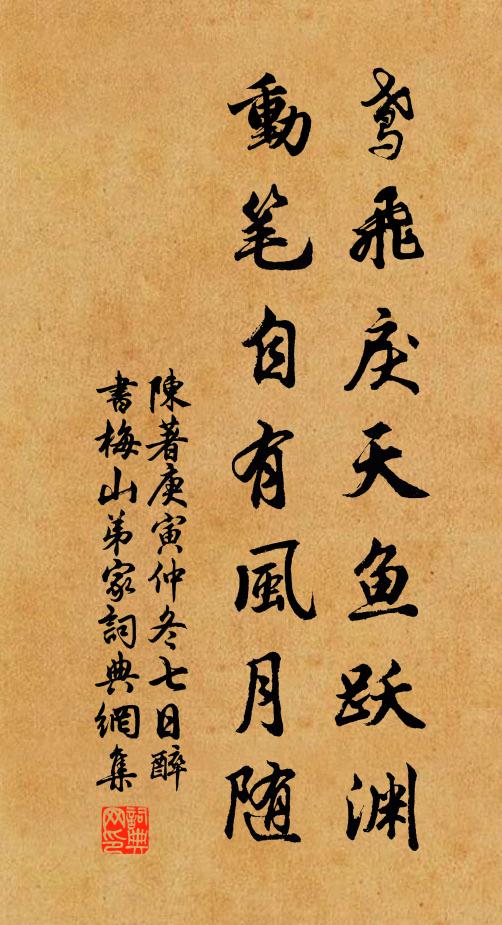 鸢飛戾天鱼跃渊
動笔自有風月随
陳著庚寅仲冬七日醉
書梅山弟家詞典網集
詞典
网印